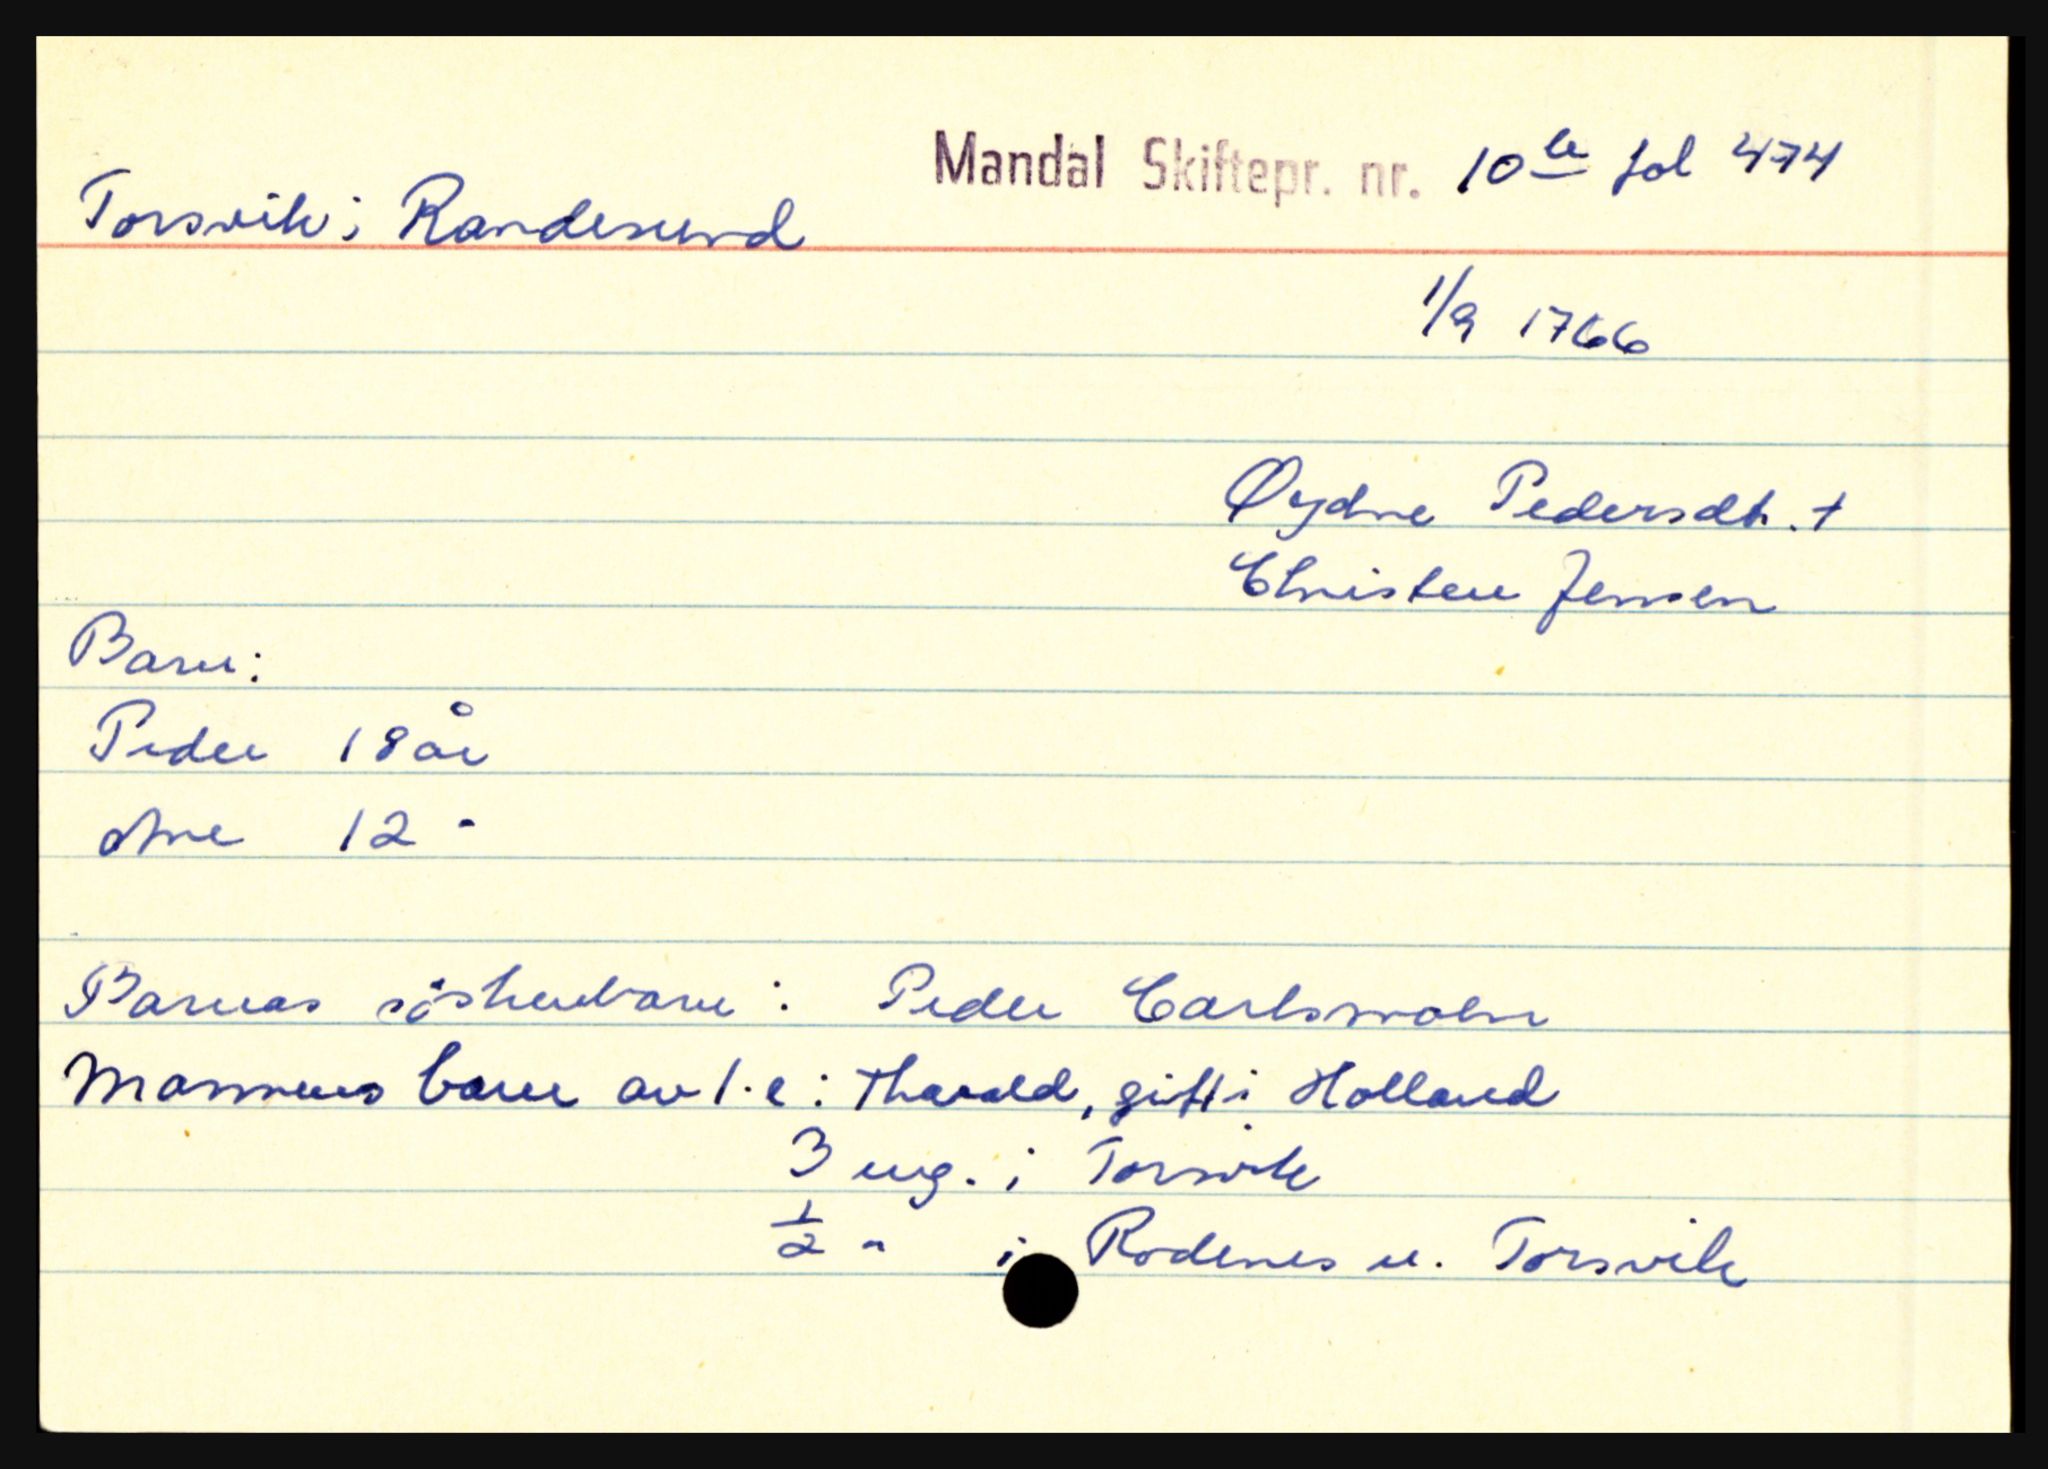 Mandal Skiftepr. nr. 10 b fol 474
Torsvik i Randesund
1/9 1766
Øydne Pedersdt. +
Christen Jensen
Barn:
Peder 18 år
Ane 12 -
Barnas söskenbarn: Peder Carlsmoln
Mannens barn av 1.e: Tharald, gift i Holland
3 eng. i Torsvik
1/2 " i Rodenes u. Torsvik